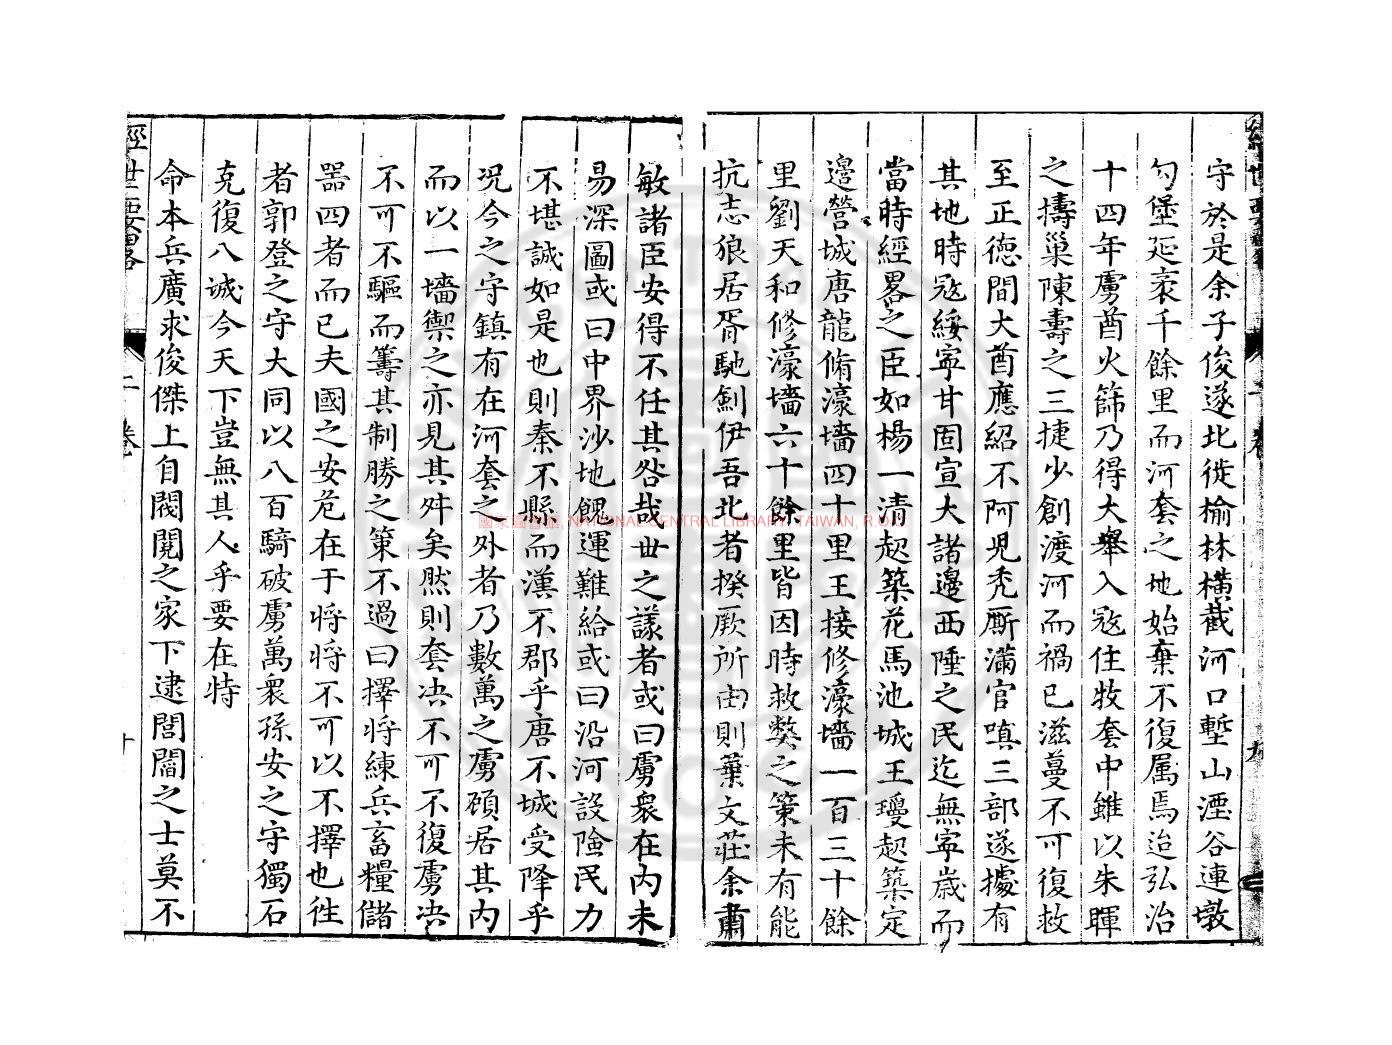 守於是余子俊遂北徙榆林橫截河口塹山湮谷連墩
勾堡延袤千餘里而河套之地始棄不復属焉迨弘治
十四年虜酋火篩乃得大舉入寇住牧套中雖以朱暉
之擣巢陳壽之三捷少創渡河而禍已滋蔓不可復救
至正德間大酋應紹不阿児禿厮滿官嗔三部遂據有
其地時寇綏寧甘固宣大諸邊西陲之民迄無寧歳而
當時經畧之臣如楊一清起築花馬池城王瓊起築定
邊營城唐龍脩濠墻四十里王接修濠墻一百三十餘
里劉天和修濠墻六十餘里皆因時救獘之策未有能
抗志狼居胥馳劍伊吾北者揆厥所由則葉文莊余肅
敏諸臣安得不任其咎哉世之議者或曰虜衆在內未
易深圖或曰中界沙地餽運難給或曰沿河設險民力
不堪誠如是也則秦不縣而漢不郡乎唐不城受降乎
况今之守鎮有在河套之外者乃數萬之虜碩居其內
而以一墻禦之亦見其舛矣然則套决不可不復虜决
不可不驅而籌其制勝之策不過曰擇將練兵畜糧儲
噐四者而已夫國之安危在于將將不可以不擇也徃
者郭登之守大同以八百騎破虜萬衆孫安之守獨石
克復八诚今天下豈無其人乎要在特
命本兵廣求俊傑上自閥閱之家下逮閭閻之士莫不
經世要略
二卷
十
國家圖書館, NATIONAL CENTRAL LIBRARY, TAIWAN, R.O.C.